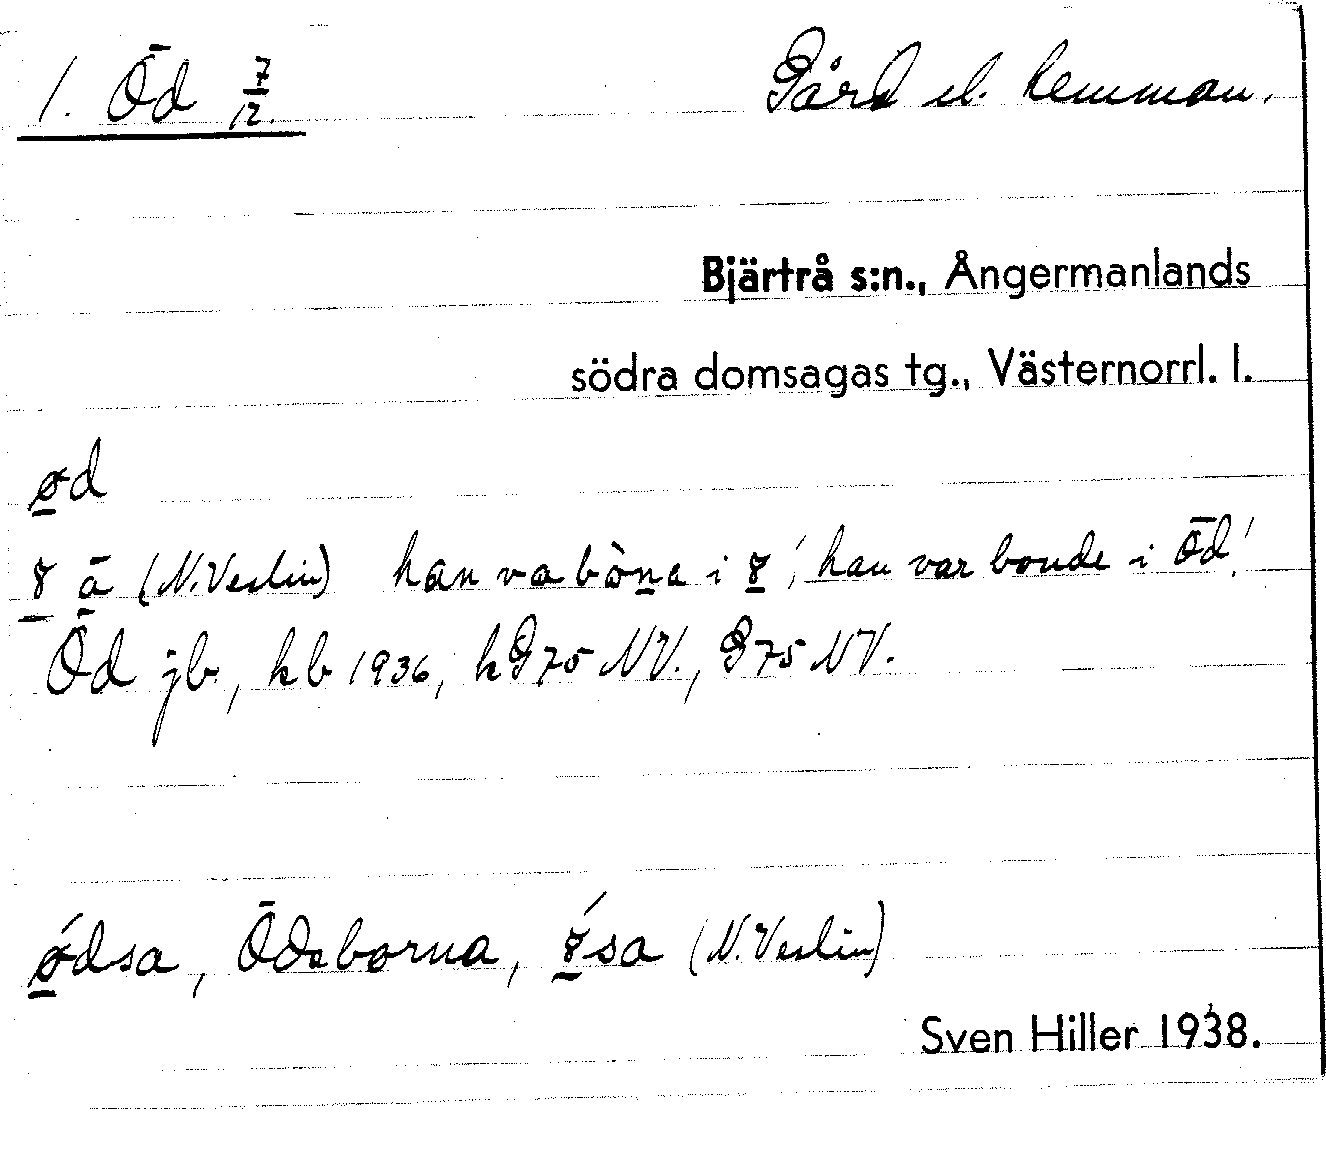 1. Öd 7/12.
Gård el. hemman.
Bjärtrå s:n., Ångermanlands
södra domsagas tg., Västernorrl. l.
ød
8 ä (N. Veslin) han va bòna i 8 ; han var bonde i Öd!
Öd jb, kb 1936, k G 75 NV., G 75 NV.
ǿdsa, Ödsborna, 8́sa (N. Veslin)
Sven Hiller 1938.